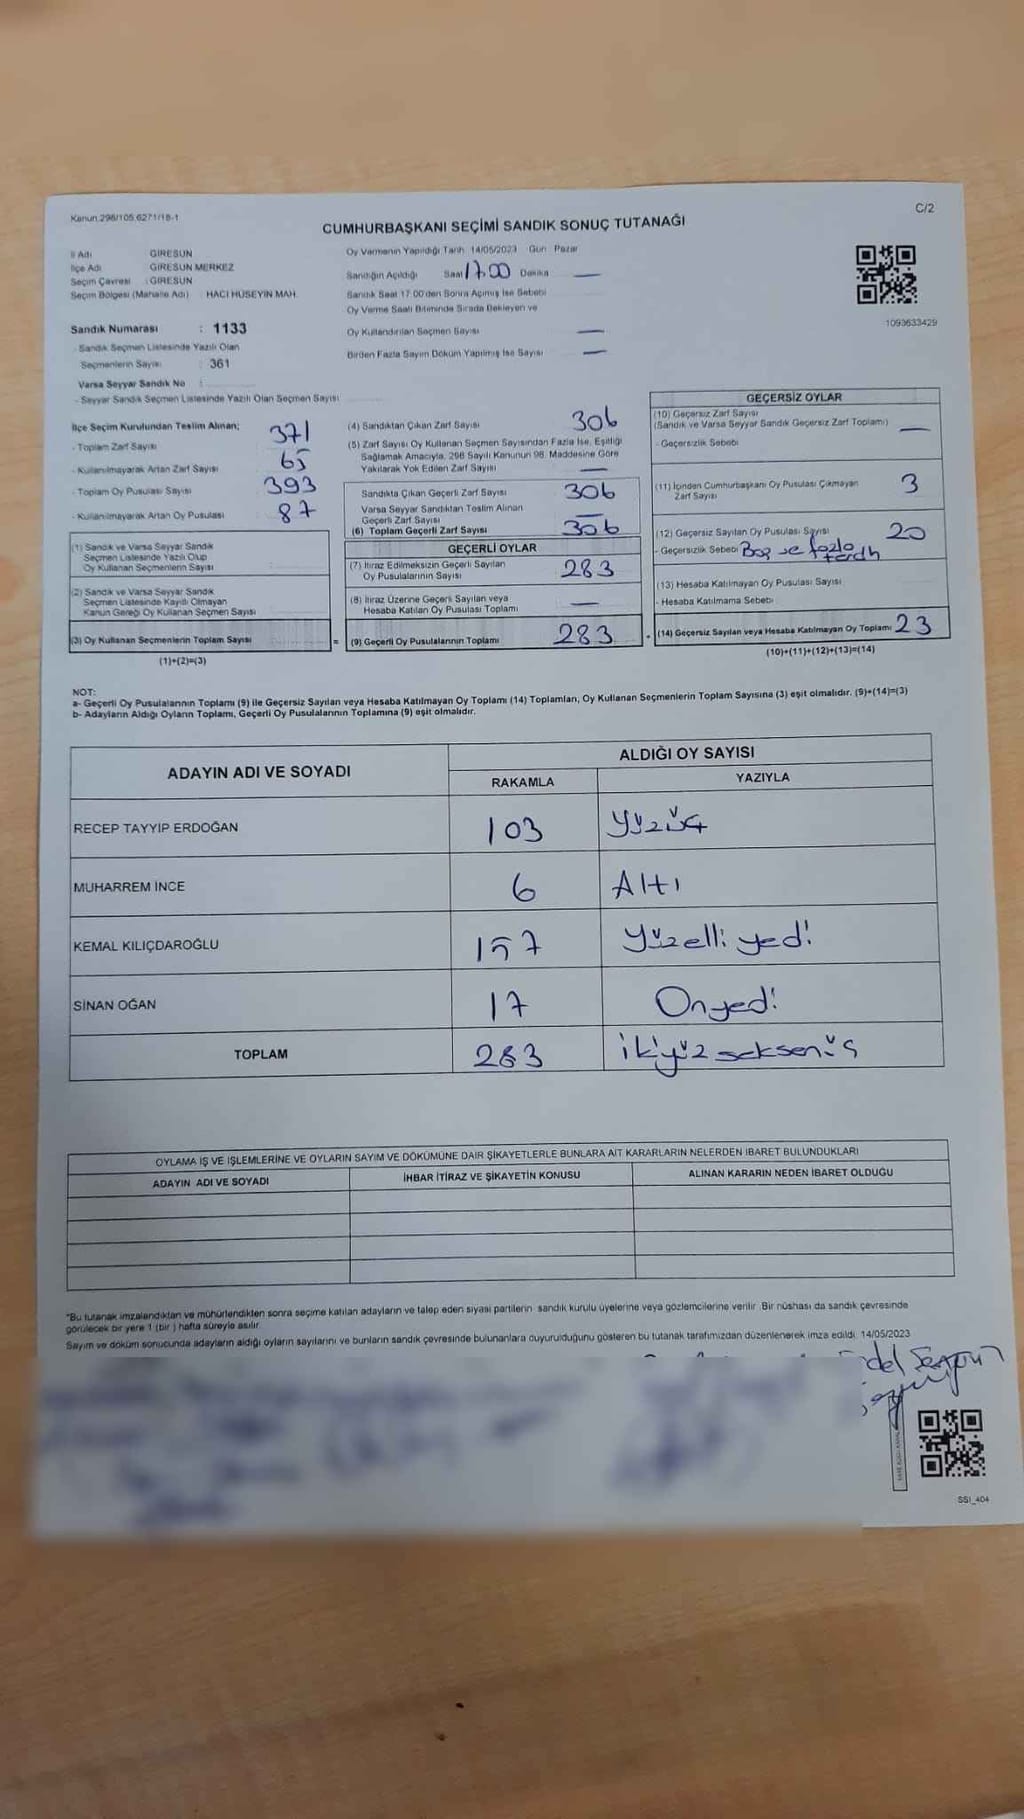 Kanun:298/105,6271/18-1
C/2
CUMHURBAŞKANI SEÇİMİ SANDIK SONUÇ TUTANAĞI
İl Adı GİRESUN
İlçe Adı GİRESUN MERKEZ
Seçim Çevresi : GİRESUN
Seçim Bölgesi (Mahalle Adı) : HACI HÜSEYİN MAH.
Sandık Numarası : 1133
Sandık Seçmen Listesinde Yazılı Olan
Seçmenlerin Sayısı : 361
Varsa Seyyar Sandık No :
- Seyyar Sandık Seçmen Listesinde Yazılı Olan Seçmen Sayısı
Oy Vermenin Yapıldığı Tarih 14/05/2023 Gün Pazar
Sandığın Açıldığı Saat 17.00 Dakika —
Sandık Saat 17.00'den Sonra Açımış İse Sebebi
Oy Verme Saati Bitiminde Sırada Bekleyen ve
Oy Kullandırılan Seçmen Sayısı —
Birden Fazla Sayım Döküm Yapılmış İse Sayısı —
1093633429
İlçe Seçim Kurulundan Teslim Alınan;
- Toplam Zarf Sayısı 371
- Kullanılmayarak Artan Zarf Sayısı 65
- Toplam Oy Pusulası Sayısı 393
- Kullanılmayarak Artan Oy Pusulası 87
(1) Sandık ve Varsa Seyyar Sandık
Seçmen Listesinde Yazılı Olup
Oy Kullanan Seçmenlerin Sayısı
(2) Sandık ve Varsa Seyyar Sandık
Seçmen Listesinde Kayıdı Olmayan
Kanun Gereği Oy Kullanan Seçmen Sayısı
(3) Oy Kullanan Seçmenlerin Toplam Sayısı =
(1)+(2)=(3)
(4) Sandıktan Çıkan Zarf Sayısı 306
(5) Zarf Sayısı Oy Kullanan Seçmen Sayısından Fazla İse, Eşitliği
Sağlamak Amacıyla, 298 Sayılı Kanunun 98. Maddesine Göre
Yakılarak Yok Edilen Zarf Sayısı —
Sandıkta Çıkan Geçerli Zarf Sayısı 306
Varsa Seyyar Sandıktan Teslim Alınan
Geçerli Zarf Sayısı —
(6) Toplam Geçerli Zarf Sayısı 306
GEÇERLİ OYLAR
(7) İtiraz Edilmeksizin Geçerli Sayılan
Oy Pusulalarının Sayısı 283
(8) İtiraz Üzerine Geçerli Sayılan veya
Hesaba Katılan Oy Pusulası Toplamı —
(9) Geçerli Oy Pusulalarının Toplamı 283 +
GEÇERSİZ OYLAR
(10) Geçersiz Zarf Sayısı
(Sandık ve Varsa Seyyar Sandık Geçersiz Zarf Toplamı) —
- Geçersizlik Sebebi
(11) İçinden Cumhurbaşkanı Oy Pusulası Çıkmayan
Zarf Sayısı 3
(12) Geçersiz Sayılan Oy Pusulası Sayısı 20
- Geçersizlik Sebebi Boş ve fazla
(13) Hesaba Katılmayan Oy Pusulası Sayısı
- Hesaba Katılmama Sebebi
(14) Geçersiz Sayılan veya Hesaba Katılmayan Oy Toplamı 23
(10)+(11)+(12)+(13)=(14)
NOT:
a- Geçerli Oy Pusulalarının Toplamı (9) ile Geçersiz Sayılan veya Hesaba Katılmayan Oy Toplamı (14) Toplamları, Oy Kullanan Seçmenlerin Toplam Sayısına (3) eşit olmalıdır. (9)+(14)=(3)
b- Adayların Aldığı Oyların Toplamı, Geçerli Oy Pusulalarının Toplamına (9) eşit olmalıdır.
ADAYIN ADI VE SOYADI ALDIĞI OY SAYISI
RAKAMLA YAZIYLA
RECEP TAYYİP ERDOĞAN 103 Yüzüç
MUHARREM İNCE 6 Altı
KEMAL KILIÇDAROĞLU 157 Yüzelli yedi
SİNAN OĞAN 17 Onyedi
TOPLAM 283 İkiyüz seksenüç
OYLAMA İŞ VE İŞLEMLERİNE VE OYLARIN SAYIM VE DÖKÜMÜNE DAİR ŞİKAYETLERLE BUNLARA AİT KARARLARIN NELERDEN İBARET BULUNDUKLARI
ADAYIN ADI VE SOYADI İHBAR İTİRAZ VE ŞİKAYETİN KONUSU ALINAN KARARIN NEDEN İBARET OLDUĞU
*Bu tutanak imzalandıktan ve mühürlendikten sonra seçime katılan adayların ve talep eden siyasi partilerin sandık kurulu üyelerine veya gözlemcilerine verilir. Bir nüshası da sandık çevresinde
görülecek bir yere 1 (bir ) hafta süreyle asılır.
Sayım ve döküm sonucunda adayların aldığı oyların sayılarını ve bunların sandık çevresinde bulunanlara duyurulduğunu gösteren bu tutanak tarafımızdan düzenlenerek imza edildi. 14/05/2023
SSI_404